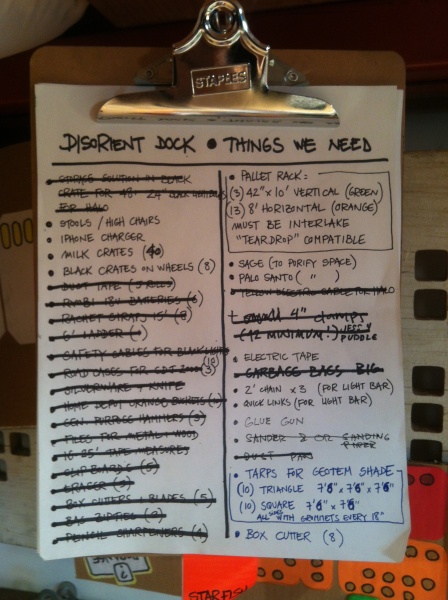 STAPLES
DISORIENT DOCK • THINGS WE NEED
CRATE FOR 48" 24"
FOR HALO
• STOOLS / HIGH CHAIRS
• IPHONE CHARGER
• MILK CRATES (40)
• BLACK CRATES ON WHEELS (8)
DUCT TAPE
RYOBI 18V BATTERIES (6)
RACHET STRAPS 15' (8)
6' LADDER
SAFETY CABLES FOR
ROAD CASES FOR CDJ 2000 (3)
(10)
SILVERWARE + KNIFE
HOME DEPOT ORANGE BUCKETS
GEN PURPOSE HAMMERS (3)
FILES FOR METAL + WOOD
TAPE MEASURES
CLIPBOARDS (5)
ERASER
BOX CUTTERS + BLADES (5)
BAG ZIPTIES
PENCIL SHARPENERS
• PALLET RACK:
(3) 42" x 10' VERTICAL (GREEN)
(13) 8' HORIZONTAL (ORANGE)
MUST BE INTERLAKE
"TEARDROP" COMPATIBLE
• SAGE (TO PURIFY SPACE)
• PALO SANTO ( " )
YELLOW ELECTRO CABLE FOR HALO
+ small 4" clamps
(12 MINIMUM!) JESS Y
PUDDLE
• ELECTRIC TAPE
GARBAGE BAGS BIG
• 2' CHAIN x 3 (FOR LIGHT BAR)
• QUICK LINKS (FOR LIGHT BAR)
• GLUE GUN
• SANDER & OR SANDING
PAPER
DUST PAN
• TARPS FOR GEOTEM SHADE
(10) TRIANGLE 7'6" x 7'6" x 7'6"
(10) SQUARE 7'6" x 7'6"
ALL SIDES WITH GROMMETS EVERY 18"
• BOX CUTTER (8)
STARFISH